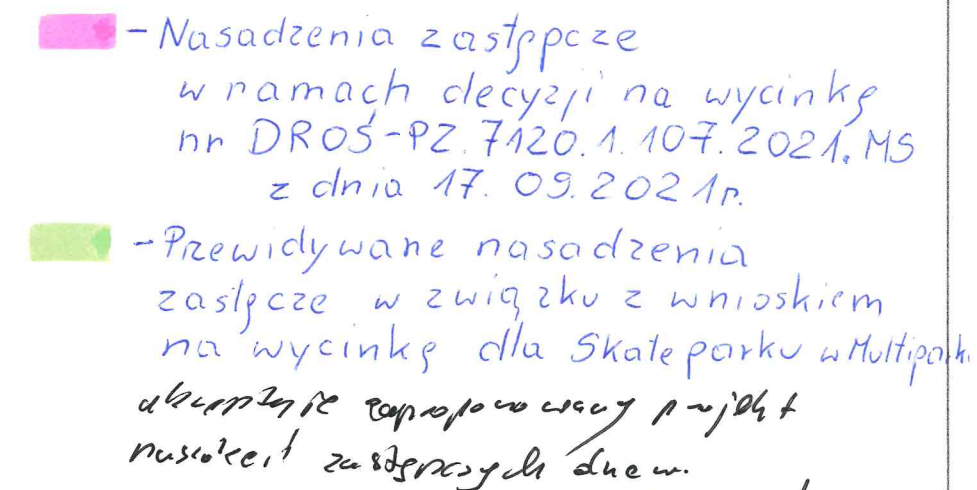 - Nasadzenia zastępcze
w ramach decyzji na wycinkę
nr DROŚ-PZ.7120.1.107.2021.MS
z dnia 17.09.2021r.
- Przewidywane nasadzenia
zastęcze w związku z wnioskiem
na wycinkę dla Skateparku w Multipark
akceptuję zaproponowany projekt
nasadzeń zastępczych drzew.